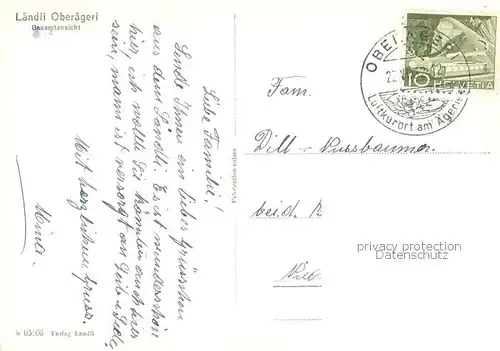 Ländli Oberägeri
Gesamtansicht
Liebe Familie!
Sende Ihnen ein liebes Grüsschen
aus dem Ländli. Es ist wunderschön
hier, ich wollte Sie könnten auch hier
sein, mann ist versorgt an Leib u. Seele.
Mit herzlichem Gruss.
Fabrication suisse
OBERÄGERI
22.
Luftkurort am Ägeri
10
HELVETIA
Fam.
Dill - Nussbaumer
beid. K
privacy protection
Datenschutz
05:00 Verlag Ländli